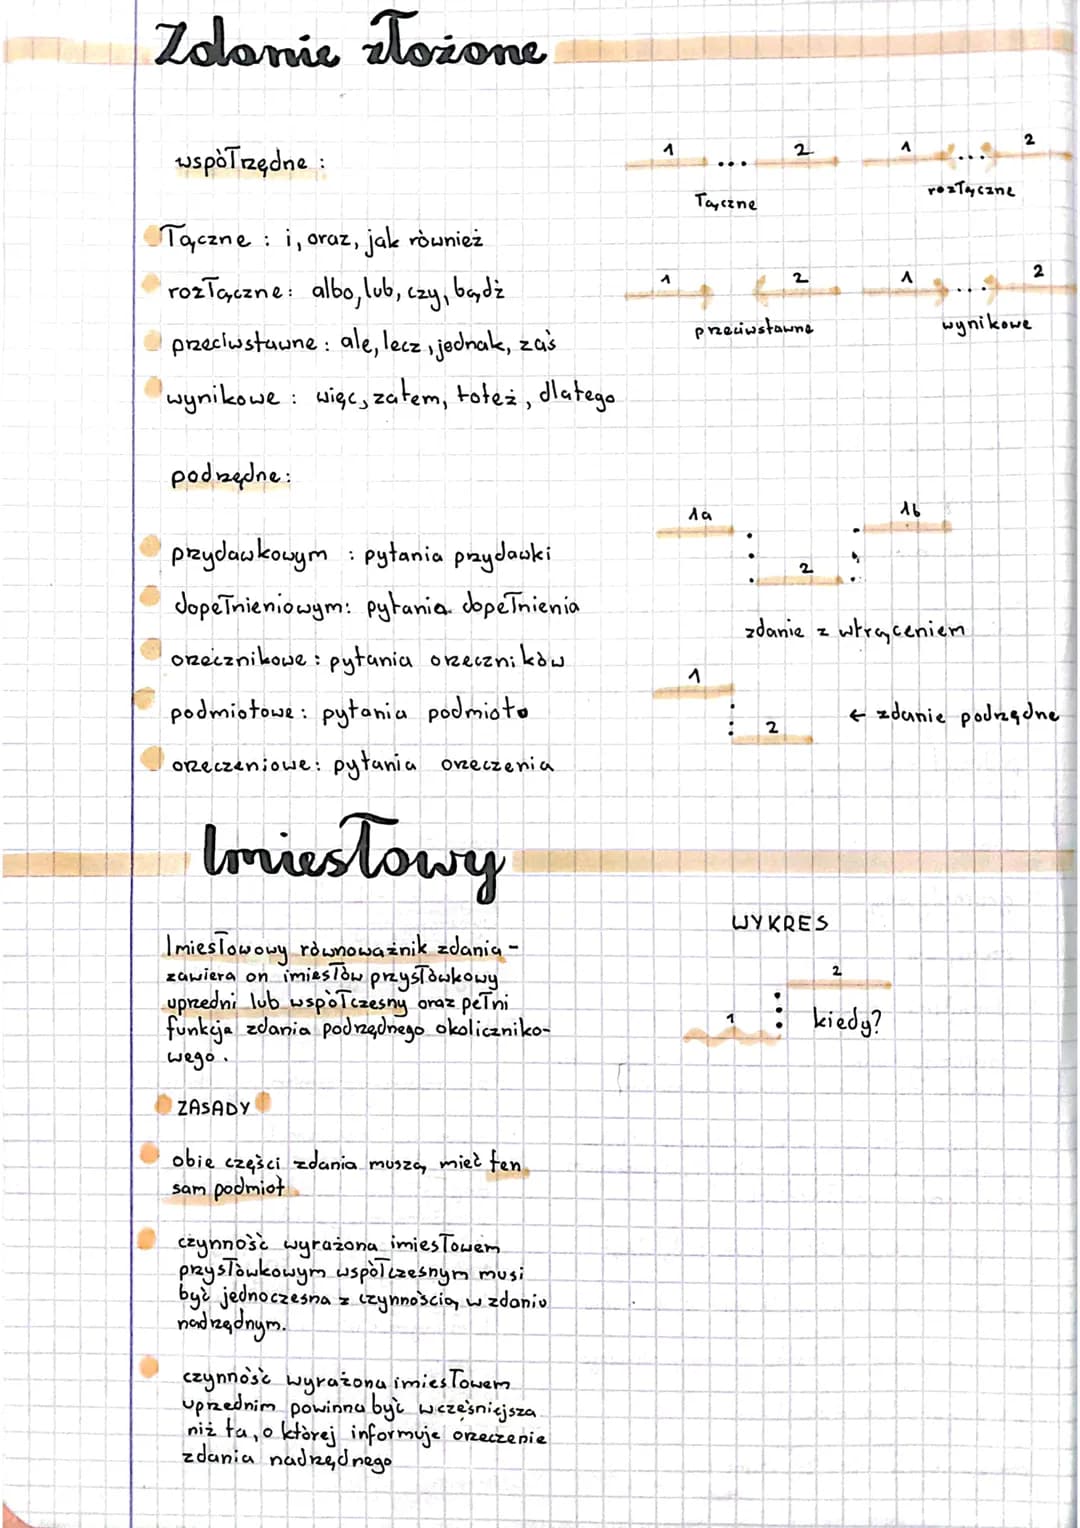 Zdanie złożone
współrzędne :
1 ... 2
łączne
1 ... 2
rozłączne
łączne : i, oraz, jak również
rozłączne: albo, lub, czy, bądź
przeciwstawne : ale, lecz, jednak, zaś
wynikowe : więc, zatem, toteż, dlatego
1 2
przeciwstawne
1 ... 2
wynikowe
podrzędne:
przydawkowym : pytania przydawki
dopełnieniowym: pytania dopełnienia
orzecznikowe : pytania orzeczników
podmiotowe: pytania podmioto
orzeczeniowe: pytania orzeczenia
1a 1b
2
zdanie z wtrąceniem
1
2
← zdanie podrzędne
Imiesłowy
Imiesłowowy równoważnik zdania -
zawiera on imiesłów przysłówkowy
uprzedni lub współczesny oraz pełni
funkcja zdania podrzędnego okoliczniko-
wego.
WYKRES
2
1
kiedy?
ZASADY
obie części zdania muszą mieć ten
sam podmiot
czynność wyrażona imiesłowem
przysłówkowym współczesnym musi
być jednoczesna z czynnością w zdaniu
nadrzędnym.
czynność wyrażona imiesłowem
uprzednim powinna być wcześniejsza
niż ta, o której informuje orzeczenie
zdania nadrzędnego